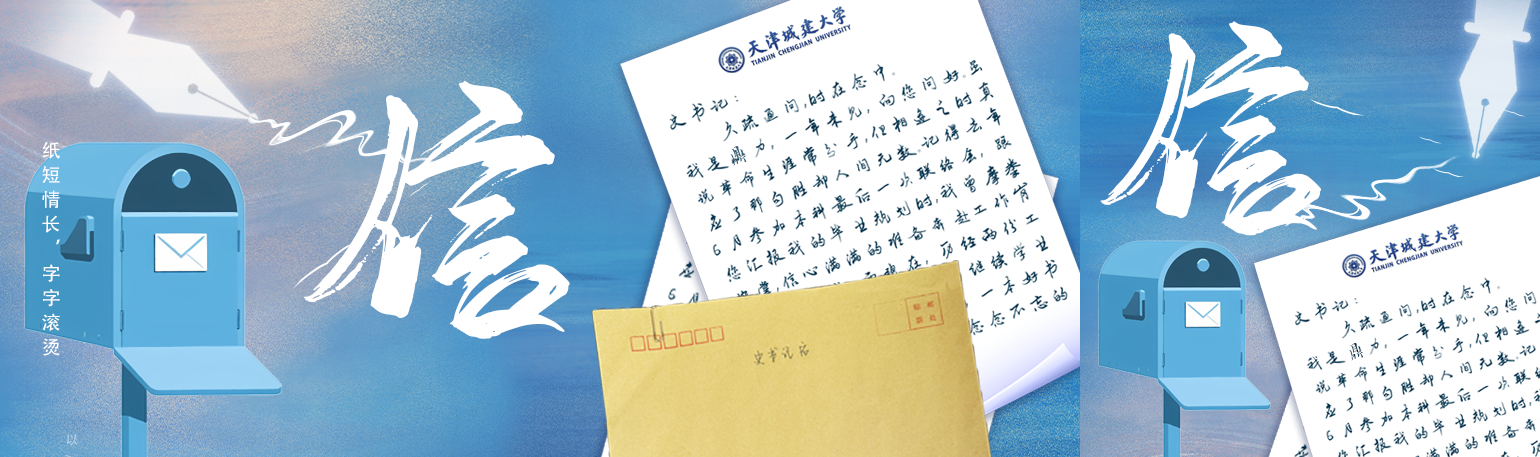 纸短情长，字字滚烫
以
信
天津城建大学
TIANJIN CHENGJIAN UNIVERSITY
文书记：
久疏通问，时在念中。
我是鼎力，一年未见，向您问好。虽
说革命生涯常分手，但相逢之时真
应了那句胜却人间无数。记得去年
6月参加本科最后一次联络会，跟
您汇报我的毕业规划时，我曾摩拳
信心满满的准备奔赴工作岗
历经两份工
继续学业
一本好书
念念不忘的
邮
处
信
天津城建大学
TIANJIN CHENGJIAN UNIVERSITY
文书记：
久疏通问，时在念中。
我是鼎力，一年未见，向您问
说革命生涯常分手，但相逢
应了那句胜却人间无数。记
6月参加本科最后一次联
您汇报我的毕业规划时，我
信心满满的准备奔